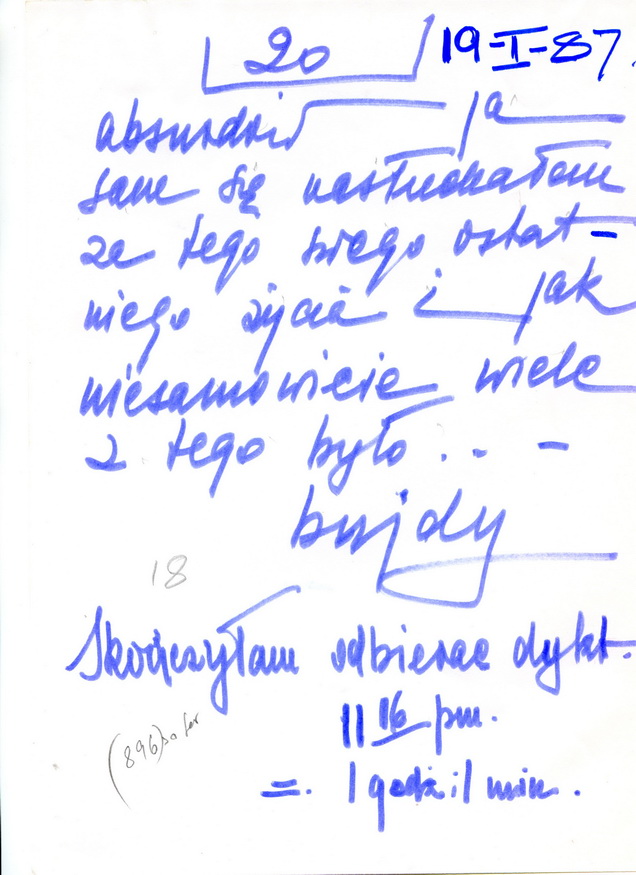 20 19-I-87.
absurdów ja
sam się nasłuchałem
ze tego mego ostat-
niego życia i jak
niesamowicie wiele
z tego było . . -
bujdy
18
Skończyłam odbierac dykt.
11 16 pm.
(896)
=. 1 godz i 1 min.